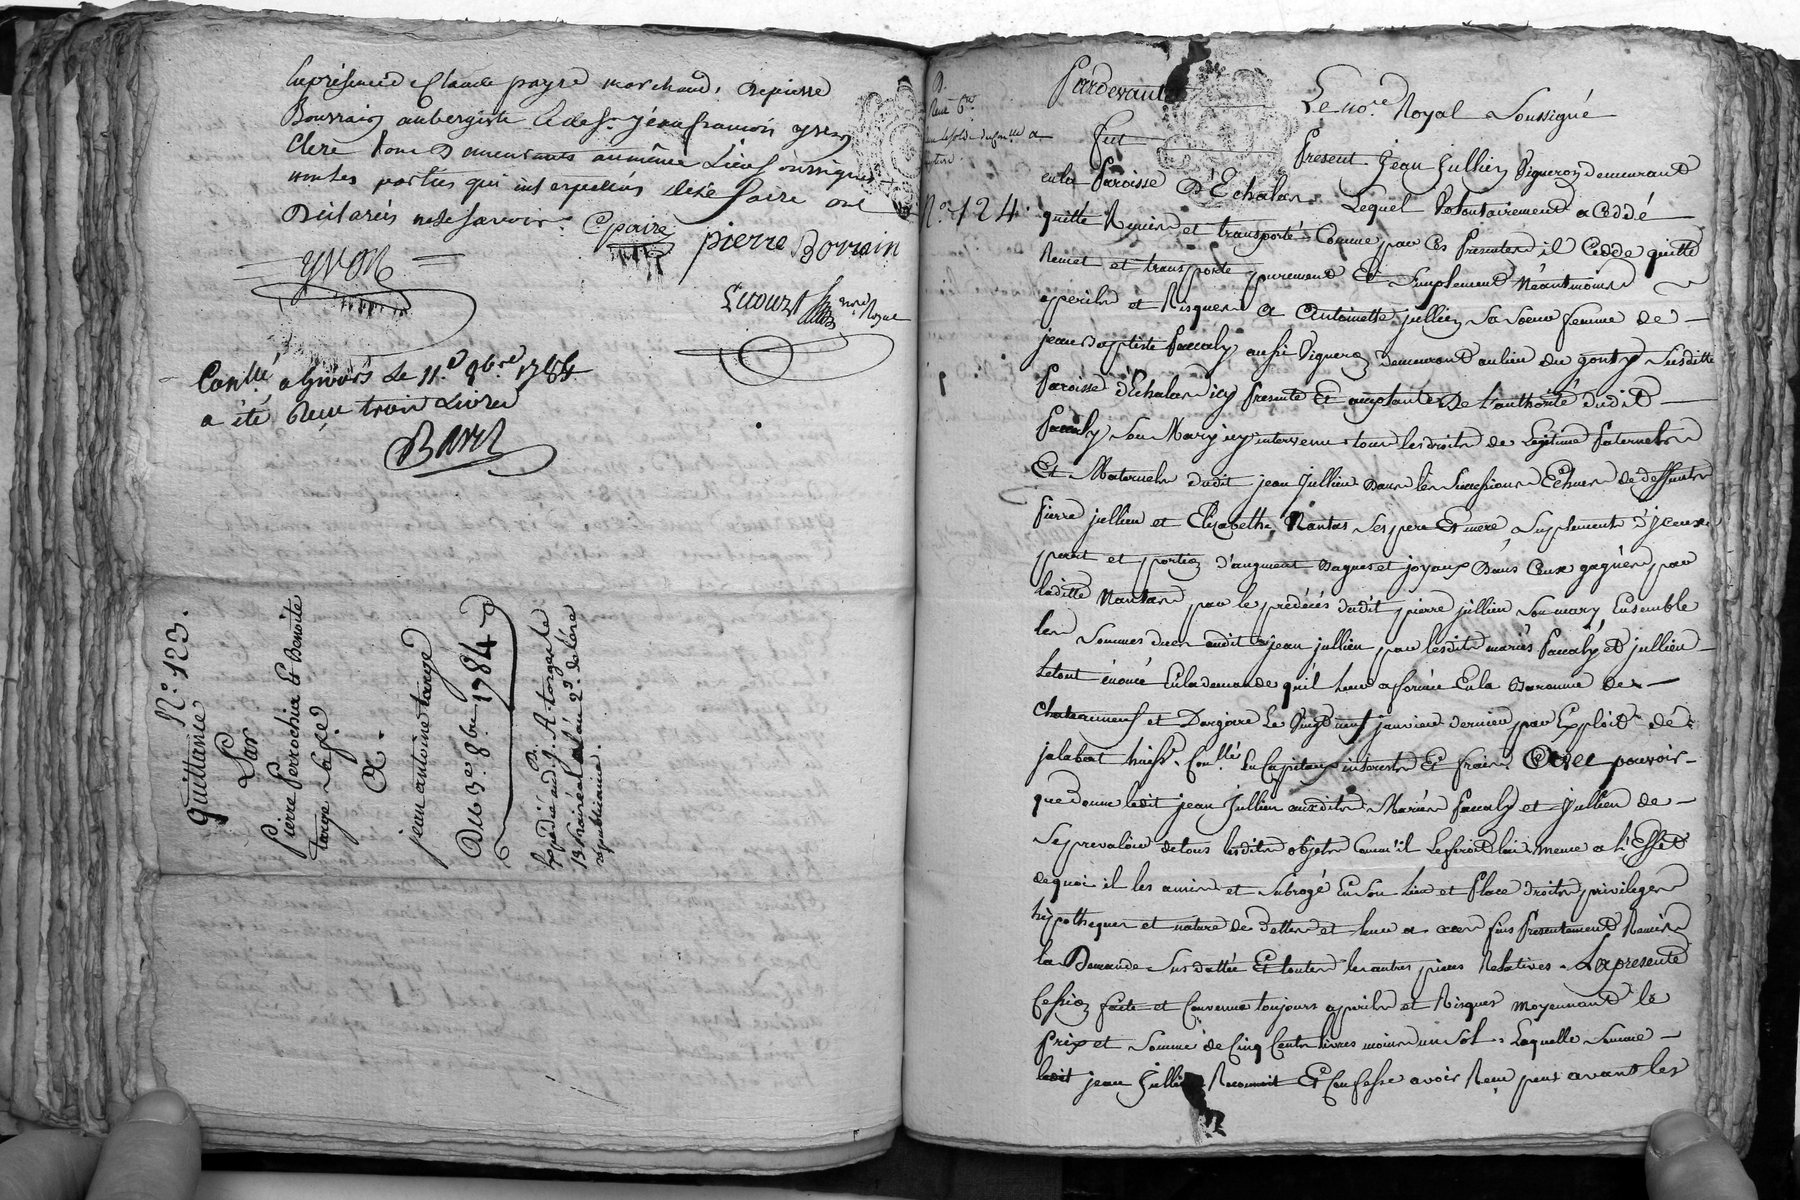 En presence de Claude payre marchand, de pierre
Bourrain aubergiste et de Sr jean francois yvon
Clerc tous demeurants au même Lieu soussignés
non les parties qui interpellées de le faire ont
Déclarées ne le savoir.
Cpaire
pierre Borrain
yvon
nore Royal
Conllé a Givors Le 11e 9bre 1784
a été Reçu trois Livres
N.o 123.
quittance
Par
Pierre Perrochia Et Benoite
targe Sa fe
A
jean antoine targe
Du 3e. 8bre 1784
Expedié aud. J. A. targe le
13 prairéal al'an 2d. de l'ére
republicaine.
N.o 124.
Pardevant
Le nore Royal Soussigné
fut
Present Jean Jullien Vigneron demeurant
en la Paroisse D'Echalas Lequel Volontairement a Ceddé
quitte Remis et transporté Comme par Ces Presentes il Cedde quitte
Remet et transporte purement Et Simplement Néantmoins
a perils et Risques A Antoinette jullien Sa Soeur femme de
jean Baptiste Pacaly aussi Vigneron demeurant au lieu du gontty Susditte
Paroisse d'Echalas icy Presente Et acceptante De L'authorité dudit
Pacaly Son Mary icy intervenu tous les droits de Legitime Paternels
Et Maternels dudit jean Jullien Dans les Successions Echues de deffunts
Pierre jullien et Elizabeth Nantas Ses pere Et mere, Suplement d'yceux
part et portion d'augment Bagues et joyaux Dans Ceux gagnés par
laditte Nantas par le prédécés dudit pierre jullien Son mary Ensemble
les Sommes dues audit jean jullien par lesdits mariés Pacaly et jullien
Letout énoncé En la demande qu'il leur a formée En la Baronnie de
Chateauneuf et Dargoire Le Vingt neuf janvier dernier par Exploit de
jalabert huissr. Conllé En Capitaux interests Et frais. Avec pouvoir
que donne ledit jean Jullien auxdits Mariés Pacaly et Jullien de
Se prevaloir de tous lesdits objets Comm'il Le feroit lui meme a l'Effet
de quoi il les a mis et Subrogé En Son Lieu et Place droits privileges
hÿpotheques et nature de dettes et leur a a ces fins Presentement Remis
la Demande Sus dattée Et toutes les autres pieces Relatives. La presente
Cession faite et Convenue toujours a perils et Risques moyennant le
Prix et Somme de Cinq Cents livres moins un Sol. Laquelle Somme
ledit jean Jullien Reconnoit Et Confesse avoir Reçu peu avant les